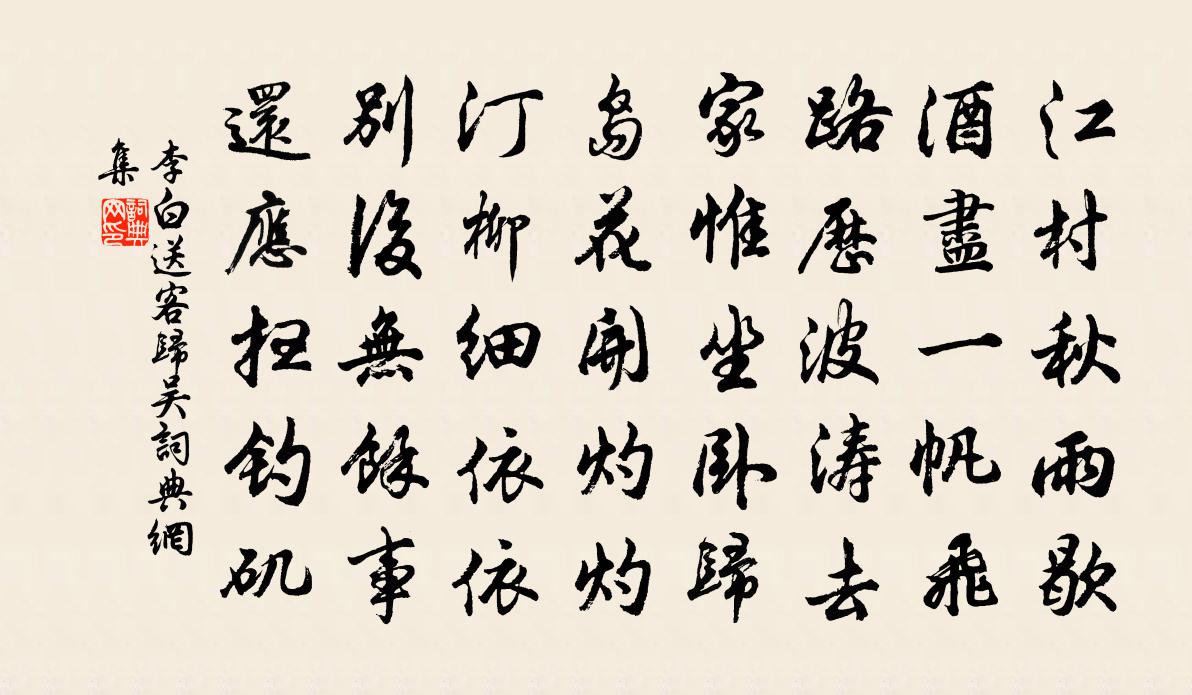 江村秋雨歇
酒盡一帆飛
路歷波涛去
家惟坐卧歸
島花開灼灼
汀柳細依依
別後無餘事
還應扫釣矶
李白送客歸吴詞典網
集
詞典网印